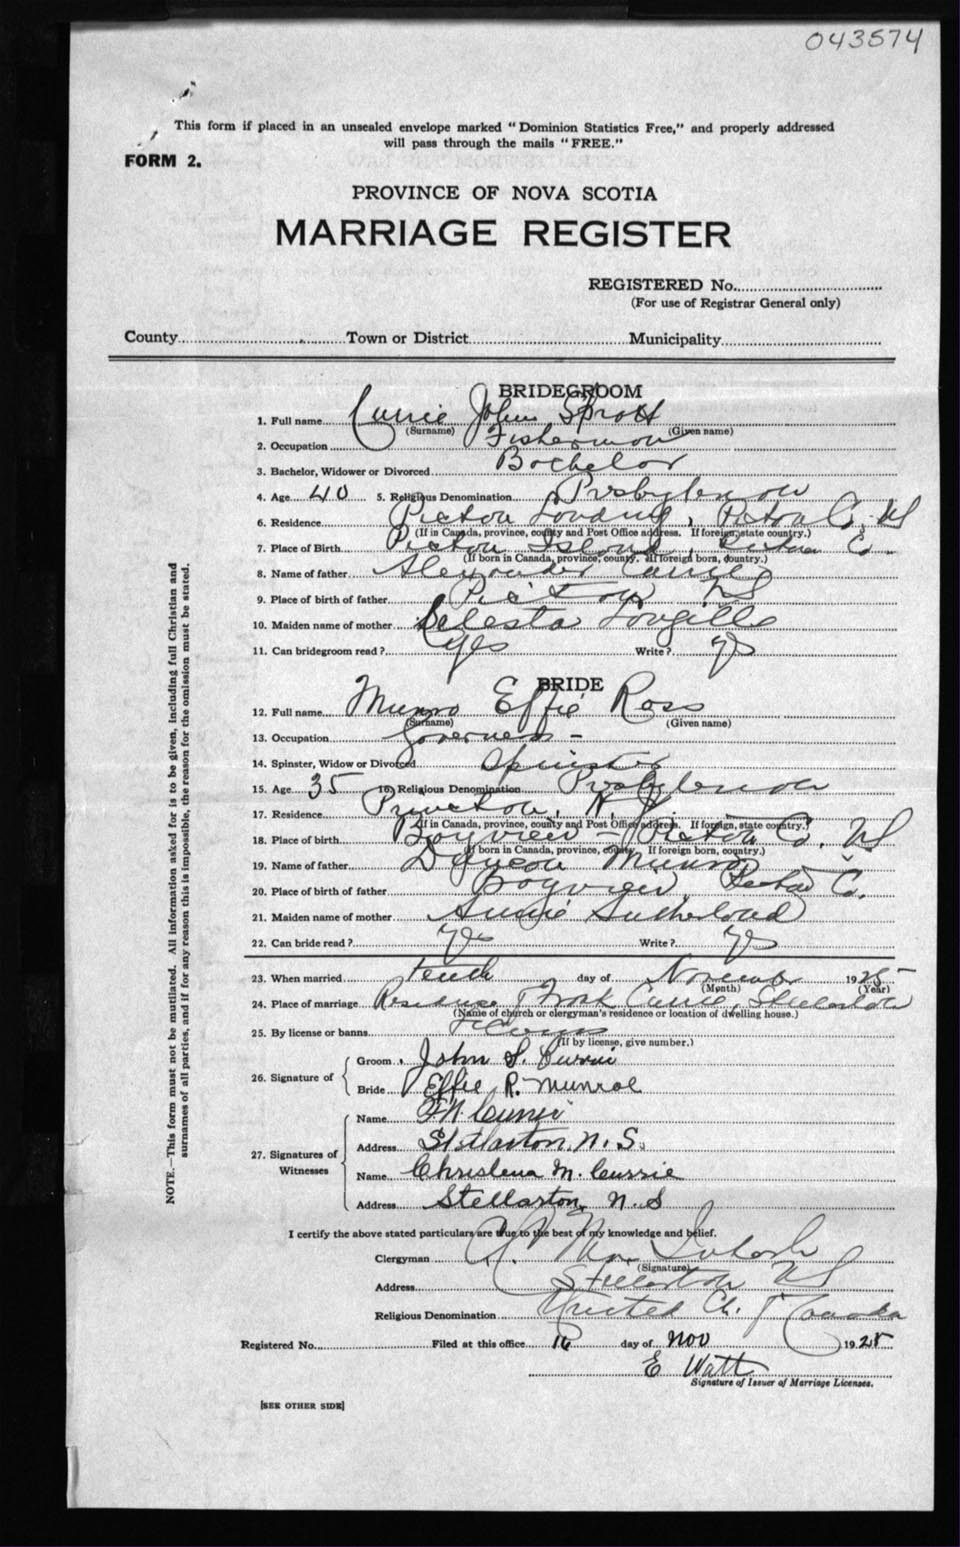 043574
This form if placed in an unsealed envelope marked "Dominion Statistics Free," and properly addressed
will pass through the mails "FREE."
FORM 2.
PROVINCE OF NOVA SCOTIA
MARRIAGE REGISTER
REGISTERED No.
(For use of Registrar General only)
County Town or District Municipality
BRIDEGROOM
1. Full name Currie John Sprott
(Surname) (Given name)
2. Occupation Fisherman
3. Bachelor, Widower or Divorced Bachelor
4. Age 40 5. Religious Denomination Presbyterian
6. Residence Pictou Landing, Pictou Co. NS
(If in Canada, province, county and Post Office address. If foreign, state country.)
7. Place of Birth Pictou Island, Pictou Co
(If born in Canada, province, county. If foreign born, country.)
8. Name of father Alexander Currie
9. Place of birth of father Pictou NS
10. Maiden name of mother Celesta Langille
11. Can bridegroom read? Yes Write? Yes
BRIDE
12. Full name Munro Effie Ross
(Surname) (Given name)
13. Occupation Governess -
14. Spinster, Widow or Divorced Spinster
15. Age 35 16. Religious Denomination Presbyterian
17. Residence Princeton, N. J.
(If in Canada, province, county and Post Office address. If foreign, state country.)
18. Place of birth Bayview Pictou Co. NS
(If born in Canada, province, county. If foreign born, country.)
19. Name of father Duncan Munro
20. Place of birth of father Bayview Pictou Co.
21. Maiden name of mother Annie Sutherland
22. Can bride read? Yes Write? Yes
23. When married tenth day of November 1925
(Month) (Year)
24. Place of marriage Residence Frank Currie, Stellarton
(Name of church or clergyman's residence or location of dwelling house.)
25. By license or banns License
(If by license, give number.)
26. Signature of Groom John S. Currie
Bride Effie R. Munroe
27. Signatures of Witnesses Name F. N. Currie
Address Stellarton, N. S.
Name Christena M. Currie
Address Stellarton, N. S
I certify the above stated particulars are true to the best of my knowledge and belief.
Clergyman MacIntosh
(Signature)
Address Stellarton NS
Religious Denomination United Ch. of Canada
Registered No. Filed at this office 16 day of Nov 1925
E Watt
Signature of Issuer of Marriage Licenses.
[SEE OTHER SIDE]
NOTE.—This form must not be mutilated. All information asked for is to be given, including full Christian and
surnames of all parties, and if for any reason this is impossible, the reason for the omission must be stated.